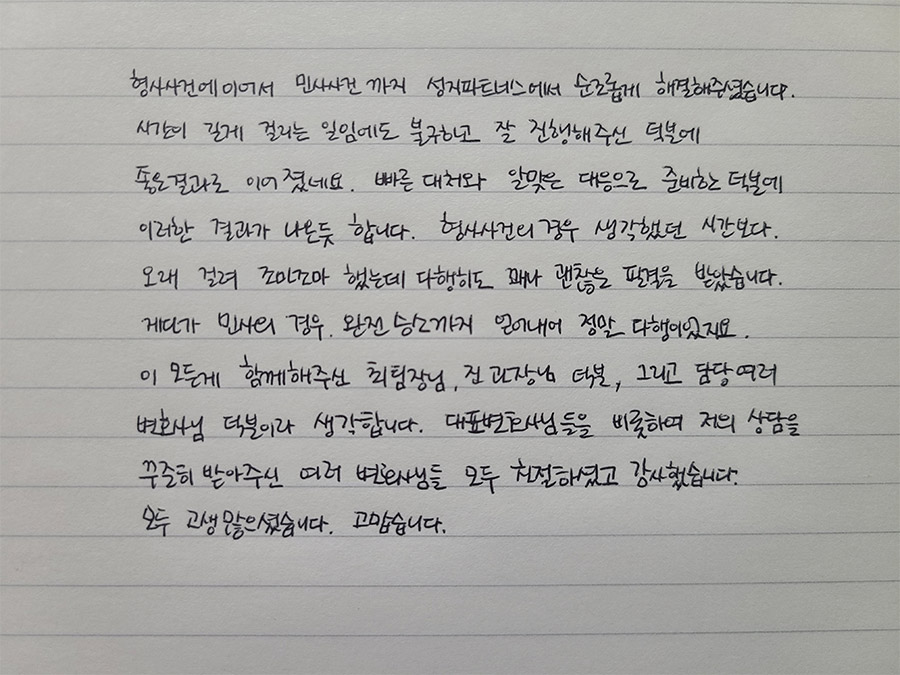 형사사건에 이어서 민사사건 까지 성지파트너스에서 순조롭게 해결해주셨습니다.
시간이 길게 걸리는 일임에도 불구하고 잘 진행해주신 덕분에
좋은결과로 이어 졌네요. 빠른 대처와 알맞은 대응으로 준비한 덕분에
이러한 결과가 나온듯 합니다. 형사사건의 경우 생각했던 시간보다.
오래 걸려 조마조마 했는데 다행히도 꽤나 괜찮은 판결을 받았습니다.
게다가 민사의 경우. 완전 승소까지 얻어내어 정말 다행이었지요.
이 모든게 함께해주신 최팀장님, 진 과장님 덕분, 그리고 담당여러
변호사님 덕분이라 생각합니다. 대표변호사님들을 비롯하여 저의 상담을
꾸준히 받아주신 여러 변호사님들 모두 친절하셨고 감사했습니다.
모두 고생많으셨습니다. 고맙습니다.